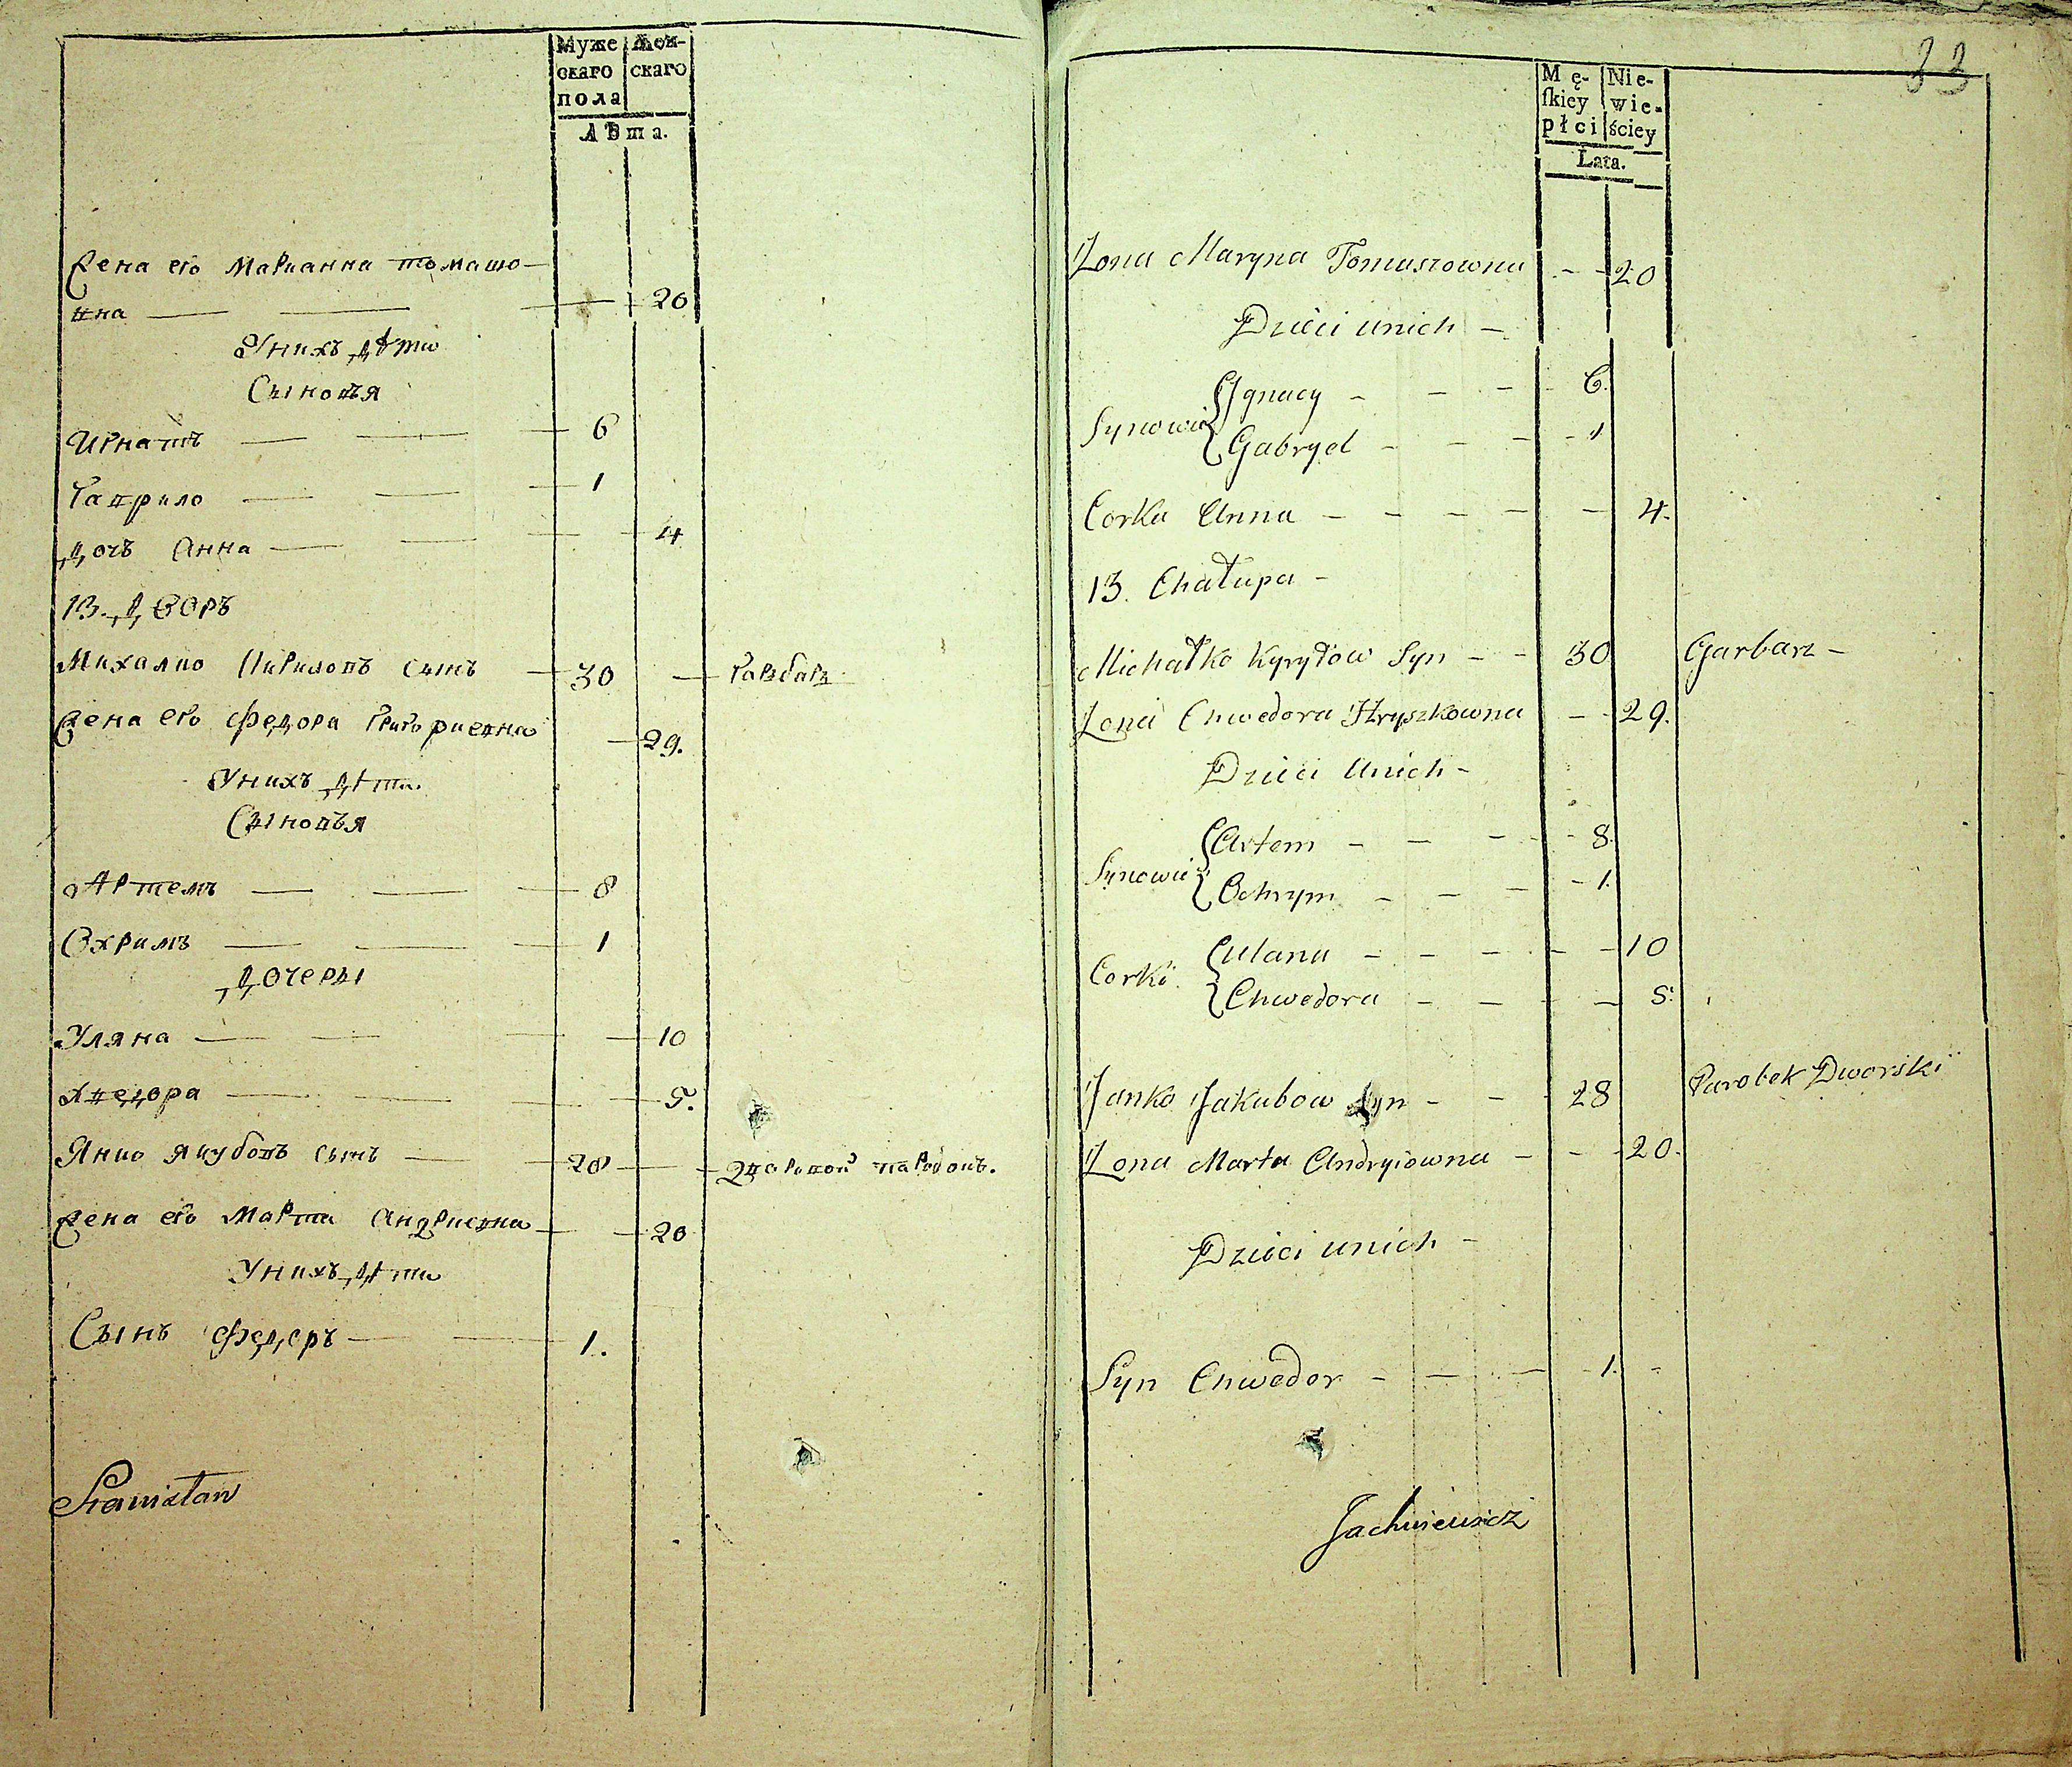 Муже Жен-
скаго скаго
пола
Лѣта.
Жена его Марианна томашо-
вна — — — 20
У нихъ дѣти
Сыновья
Игнатъ — — — 6
Гаврило — — — 1
Дочъ Анна — — — 4
13. Дворъ
Михалко Кириловъ сынъ — 30 — гарбар
Жена его Федора Григориевна — 29.
У нихъ дѣти
Сыновья
Артемъ — — — 8
Охримъ — — — 1
Дочеры
Уляна — — — 10
Хведора — — — 5.
Янко якубовъ сынъ — — 28 — дворной паробокъ.
Жена его Марта Андриевна — 20
У нихъ дѣти
Сынъ Федеръ — — 1.
Stanisław
33
Mę- Nie-
ſkiey wie-
płci ściey
Lata.
Żona Maryna Tomaszowna - - 20
Dzieci unich -
Synowie Ignacy - - - 6.
Gabryel - - - 1
Corka Anna - - - - 4.
13. Chałupa -
Michałko Kyryłow Syn - - 30 Garbarz -
Żona Chwedora Hryszkowna - - 29.
Dzieci Unich -
Synowie Artem - - - 8.
Ochrym - - - 1.
Corki Ulana - - - - 10
Chwedora - - - 5.
Janko Jakubow Syn - - 28 Parobek Dworski
Żona Marta Andryiowna - - - 20.
Dzieci unich -
Syn Chwedor - - - 1. -
Jachniewicz